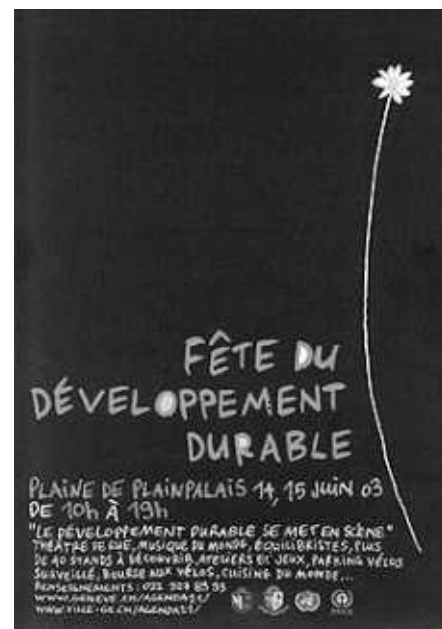 FÊTE DU
DÉVELOPPEMENT
DURABLE
PLAINE DE PLAINPALAIS 14, 15 JUIN 03
DE 10h À 19h
"LE DÉVELOPPEMENT DURABLE SE MET EN SCÈNE"
THÉÂTRE DE RUE, MUSIQUE DU MONDE, ÉQUILIBRISTES, PLUS
DE 40 STANDS À DÉCOUVRIR, ATELIERS ET JEUX, PARKING VÉLOS
SURVEILLÉ, BOURSE AUX VÉLOS, CUISINE DU MONDE...
RENSEIGNEMENTS: 022
WWW.GENEVE.CH/AGENDA21/
WWW.VILLE-GE.CH/AGENDA21/